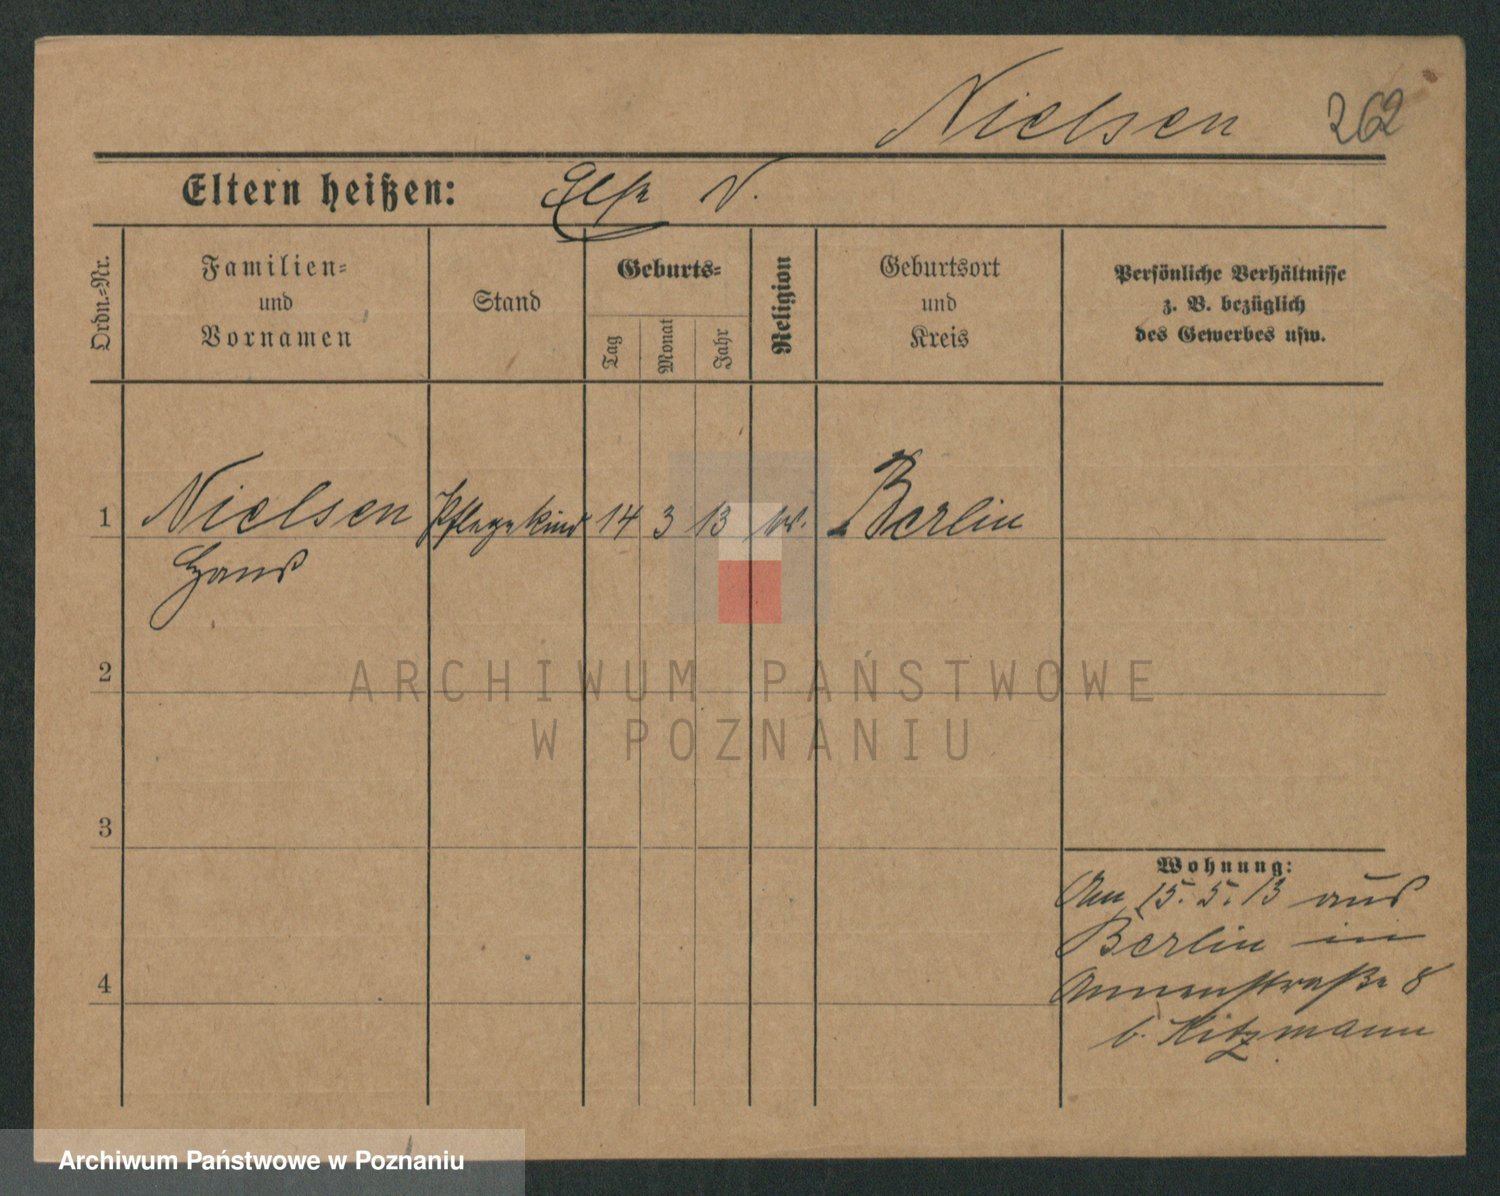 Nielsen 262
Eltern heißen: Else N.
Ordn.-Nr.
Familien-
und
Vornamen
Stand
Geburts-
Tag
Monat
Jahr
Religion
Geburtsort
und
Kreis
Persönliche Verhältnisse
z. B. bezüglich
des Gewerbes usw.
1 Nielsen Pflegekind 14 3 13 Berlin
Hans
2
ARCHIWUM PAŃSTWOWE
W POZNANIU
3
Wohnung:
Am 15. 5. 13 aus
Berlin in
4 Annenstraße 8
b. Kitzmann
Archiwum Państwowe w Poznaniu